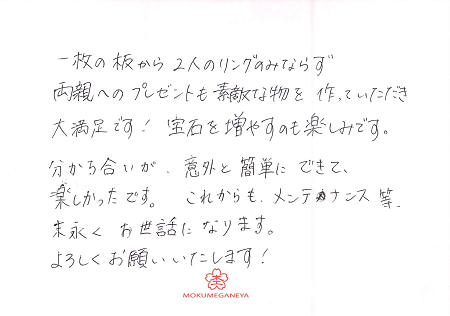 一枚の板から2人のリングのみならず
両親へのプレゼントも素敵な物を作っていただき
大満足です! 宝石を増やすのも楽しみです。
分かち合いが、意外と簡単にできて、
楽しかったです。 これからも、メンテナンス等、
末永く お世話になります。
よろしくお願いいたします!
MOKUMEGANEYA